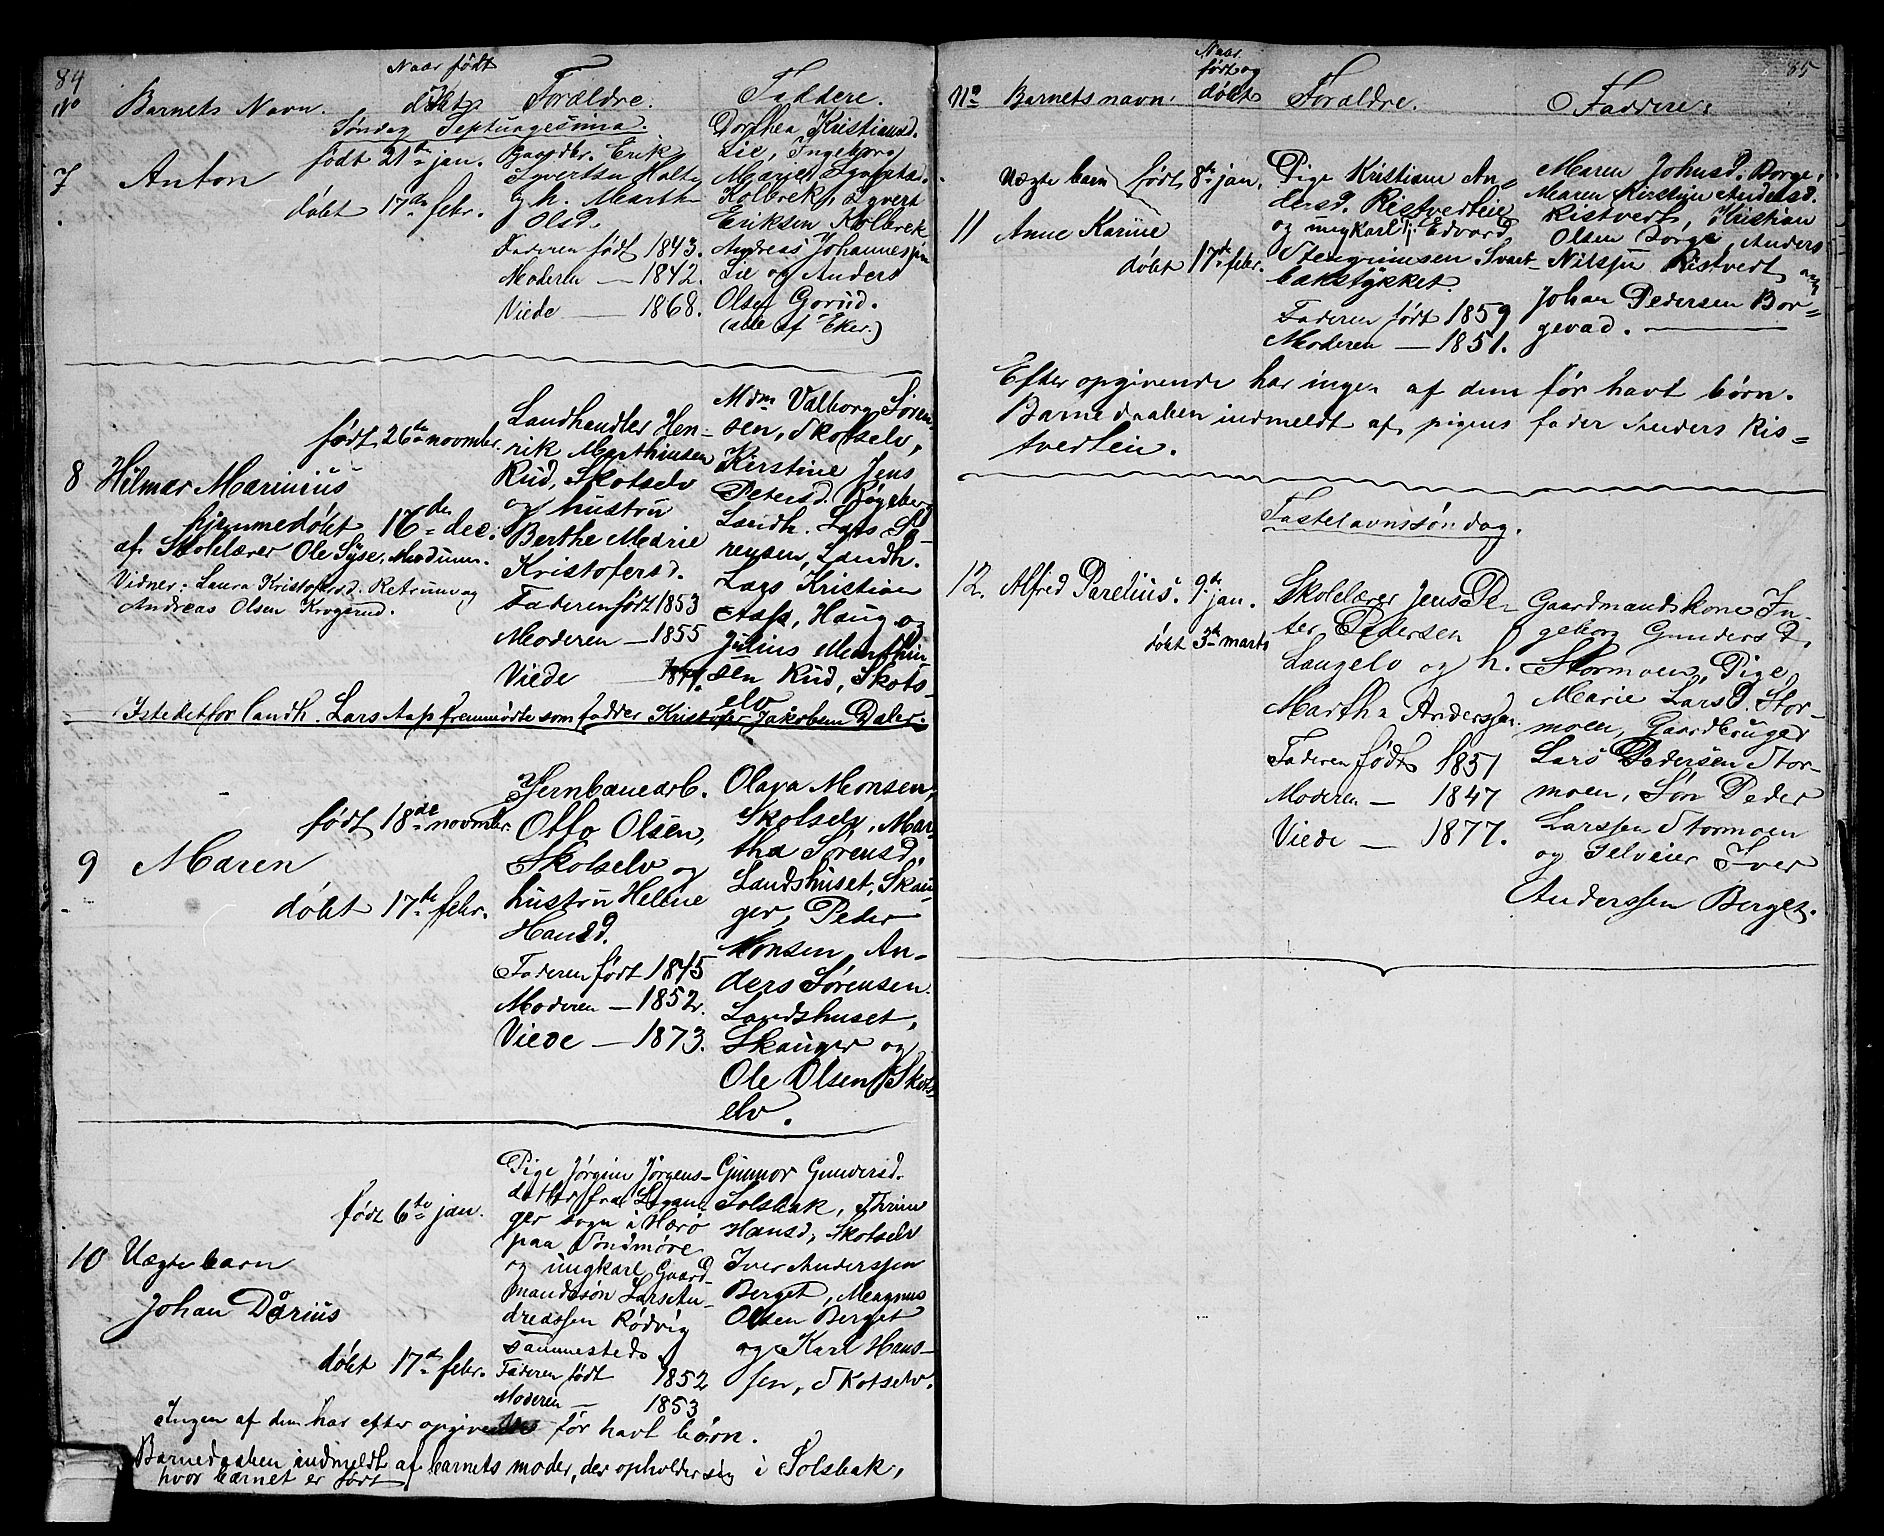 84
No Barnets Navn. Naar født døbt Forældre. Faddere.
Søndag Septuagesima.
7 Anton
født 21de jan.
døbt 17de febr.
Gaardbr. Erik
Syvertsen Holte
og h. Marthe
Olsd.
Faderen født 1843.
Moderen — 1842.
Viede — 1868.
Dorthea Kristiansd.
Lie, Ingeborg
Marie
Kolbrek, Syvert
Eriksen Kolbrek
Andreas Johannessen
Lie og Anders
Olsen Gorud.
(alle af Eker.)
8 Hilmar Marinius
født 26de novmbr.
hjemmedøbt 16de dec.
af Skolelærer Ole Syse, Modum.
Vidner: Laura Kristofersd. Retrum og
Andreas Olsen Krogsrud.
Landhandler Hen-
rik Marthinsen
Rud, Skotselv
og hustru
Berthe Marie
Kristofersd.
Faderen født 1853
Moderen — 1855
Viede —
Mdm Valborg Søren-
sen, Skotselv,
Kirstine Jens
Petersd. Bøgeberg
Landh. Lars Sø-
rensen, Landh.
Lars Kristian
Aass, Haug og
Julius Marthin-
sen Rud, Skots-
elv
Istedetfor landh. Lars Aass fremmødte som fadder Kristofer Jakobsen Daler.
9 Maren
født 18de novmbr.
døbt 17de febr.
Jernbanearb.
Otto Olsen,
Skotselv og
hustru Helene
Hansd.
Faderen født 1845
Moderen — 1852.
Viede — 1873.
Olava Monsen,
Skotselv, Mar-
tha Sørensd,
Landshuset, Skau-
ger, Peder
Monsen, An-
ders Sørensen
Landshuset,
Skauger og
Ole Olsen, Skots-
elv.
10 Uægte barn
Johan Dårius
født 6te jan.
døbt 17de febr.
Pige Jørgine Jørgens-
datter fra
ger sogn i Herø
paa Søndmøre
og ungkarl Gaard-
mandssøn Lars An-
dreassen Rødvig
sammesteds
Faderen født 1852
Moderen — 1853
Gunnor Gundersd.
Solsbak, Thrine
Hansd, Skotselv
Iver Anderssen
Berget, Magnus
Olsen Berget
og Karl Hans-
sen, Skotselv.
Ingen af dem har efter opgivende før havt børn.
Barnedaaben indmeldt af barnets moder, der opholder sig i Solsbak,
hvor barnet er født
85
No Barnets navn. Naar født og døbt Forældre. Faddere.
Uægte barn
11 Anne Karine
født 8de jan.
døbt 17de febr.
Pige Kristiane An-
dersd. Ristvedteie
og ungkarl Edvard
Stengrimsen Svart-
bakstykket.
Faderen født 1859
Moderen — 1851.
Maren Johnsd. Borge,
Maren Kirstine Andersd.
Ristvert, Kristian
Olsen Borge, Anders
Nilssen Ristvert og
Johan Pedersen Bor-
gevad.
Efter opgivende har ingen af dem før havt børn.
Barnedaaben indmeldt af pigens fader Anders Ris-
tvedteie.
Fastelavnssøndag.
12. Alfred Parelius.
9de jan.
døbt 3de marts
Skolelærer Jens Pe-
ter Pedersen
Langelv og h.
Martha Anderssen.
Faderen født 1851
Moderen — 1847
Viede — 1877.
Gaardmandskone In-
geborg Gundersd.
Stormoen, Pige
Marie Larsd. Stor-
moen, Gaardbruger
Lars Pedersen Stor-
moen, Søn Peder
Larssen Stormoen
og Selveier Iver
Anderssen Berget.